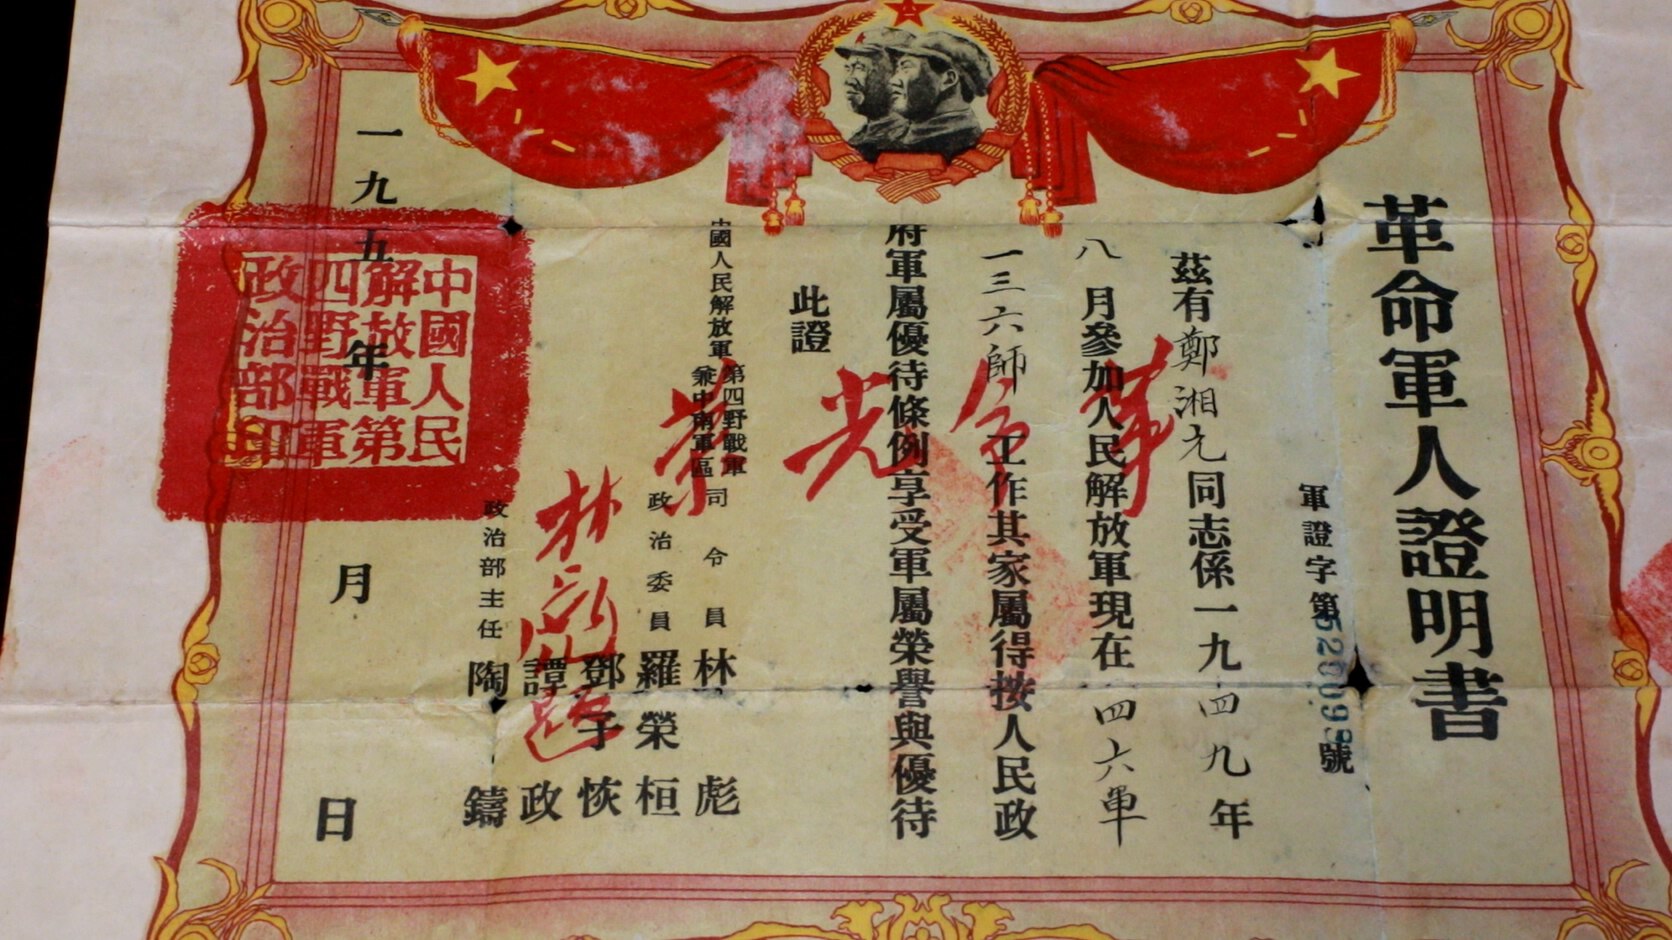 革命軍人證明書
軍證字第520099號
茲有鄭湘元同志係一九四九年
八月參加人民解放軍現在四六軍
一三六師工作其家屬得按人民政
府軍屬優待條例享受軍屬榮譽與優待
此證
革命光榮
中國人民解放軍
第四野戰軍
兼中南軍區
司令員林彪
政治委員羅榮桓
鄧子恢
譚政
政治部主任陶鑄
一九五年月日
中國人民
解放軍第
四野戰軍
政治部印